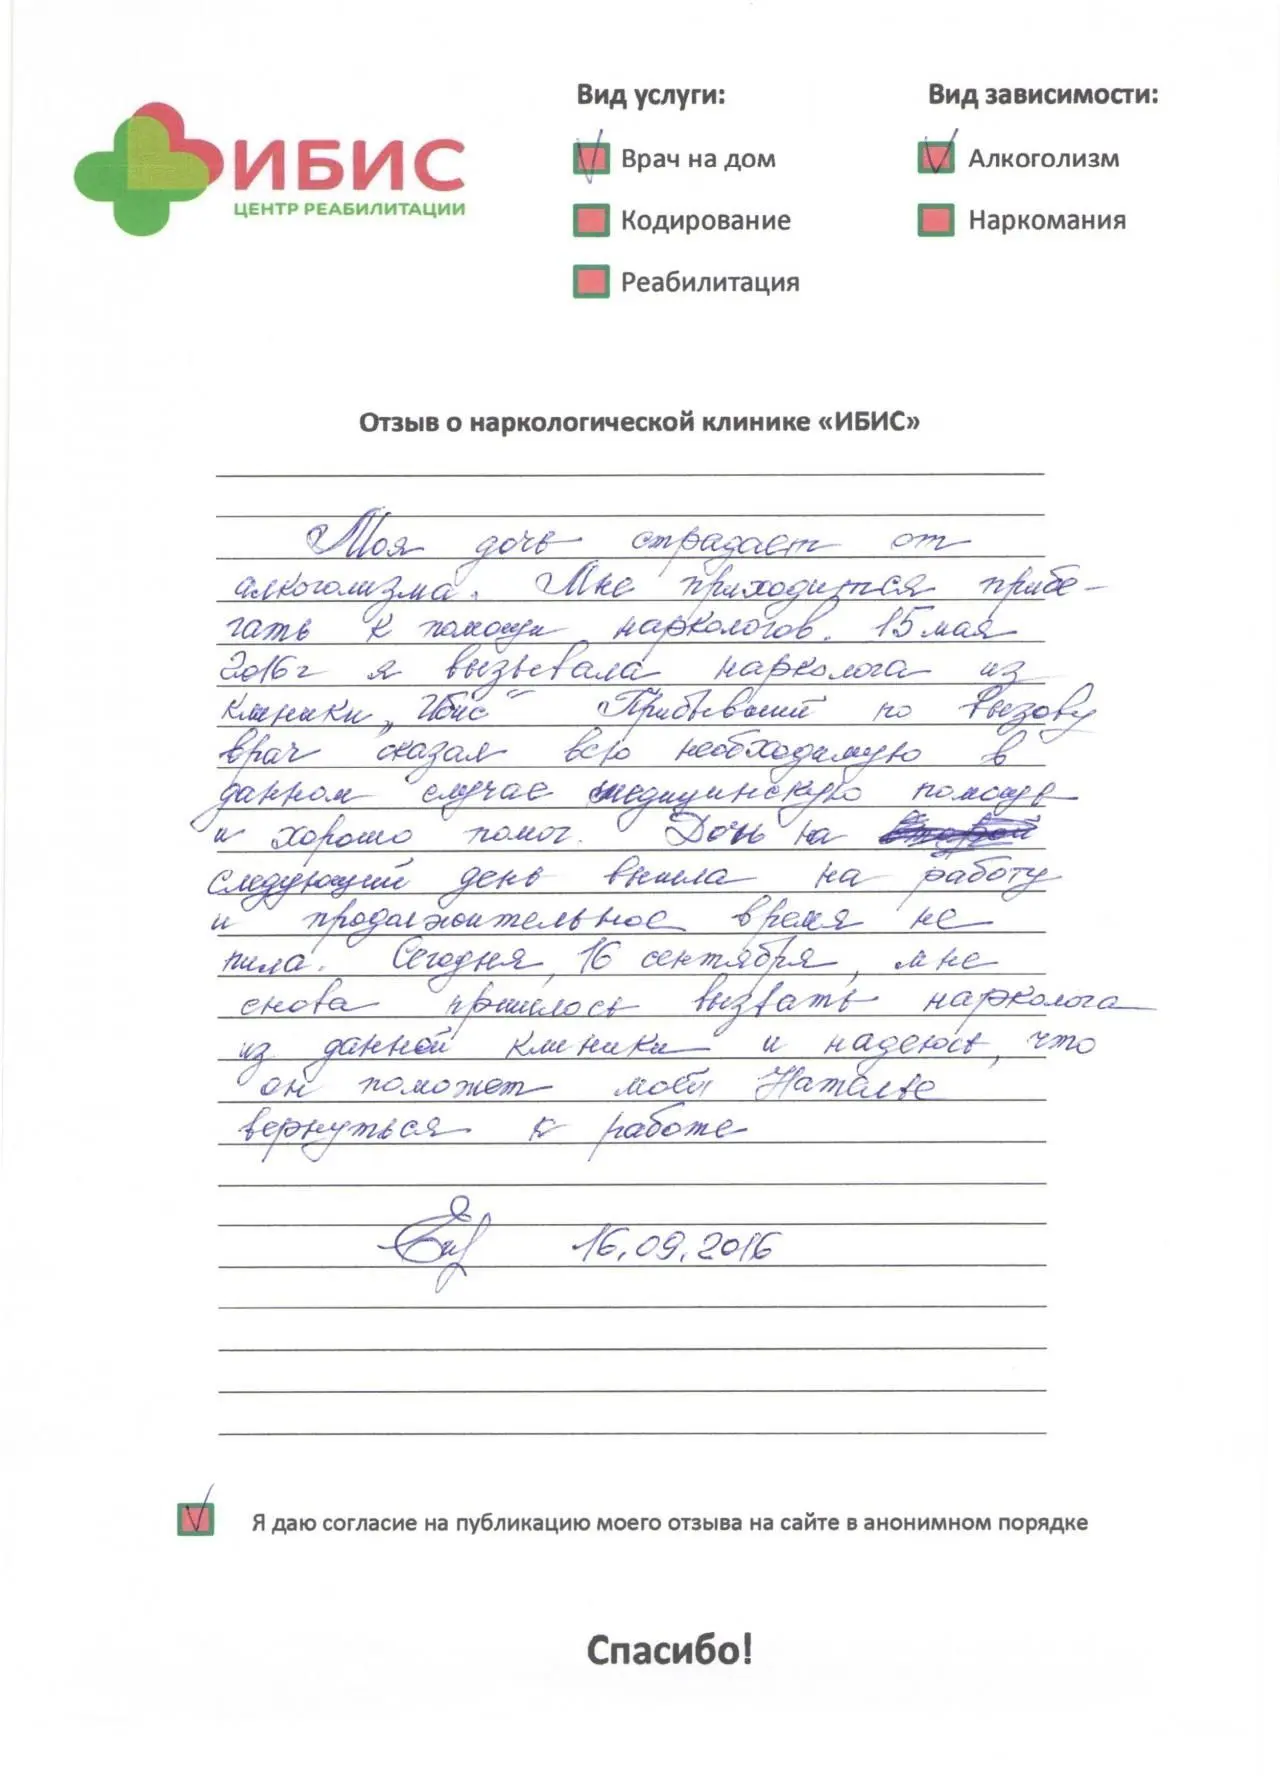 ИБИС
ЦЕНТР РЕАБИЛИТАЦИИ
Вид услуги:
Врач на дом
Кодирование
Реабилитация
Вид зависимости:
Алкоголизм
Наркомания
Отзыв о наркологической клинике «ИБИС»
Моя дочь страдает от
алкоголизма. Мне приходится прибе-
гать к помощи наркологов. 15 мая
2016 г я вызывала нарколога из
клиники „Ибис" Прибывший по вызову
врач оказал всю необходимую в
данном случае медицинскую помощь
и хорошо помог. Дочь на
следующий день вышла на работу
и продолжительное время не
пила. Сегодня, 16 сентября, мне
снова пришлось вызвать нарколога
из данной клиники и надеюсь, что
он поможет моей Наталье
вернуться к работе
16.09.2016
Я даю согласие на публикацию моего отзыва на сайте в анонимном порядке
Спасибо!